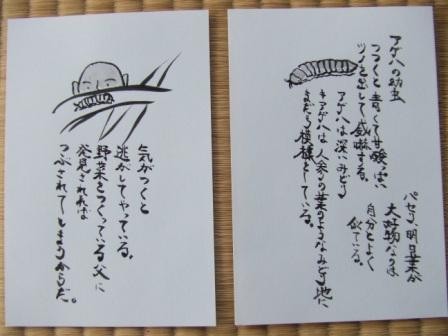 アゲハの幼虫
つつくと青くて甘酸っぱい
ツノを出して威嚇する。
アゲハは深いみどり
キアゲハは人参の葉のようなみどり地に
まだら模様をしている。
パセリ、明日葉が
大好物なのは
自分とよく
似ている。
気がつくと
逃がしてやっている。
野菜をつくっている父に
発見されれば
つぶされてしまうからだ。